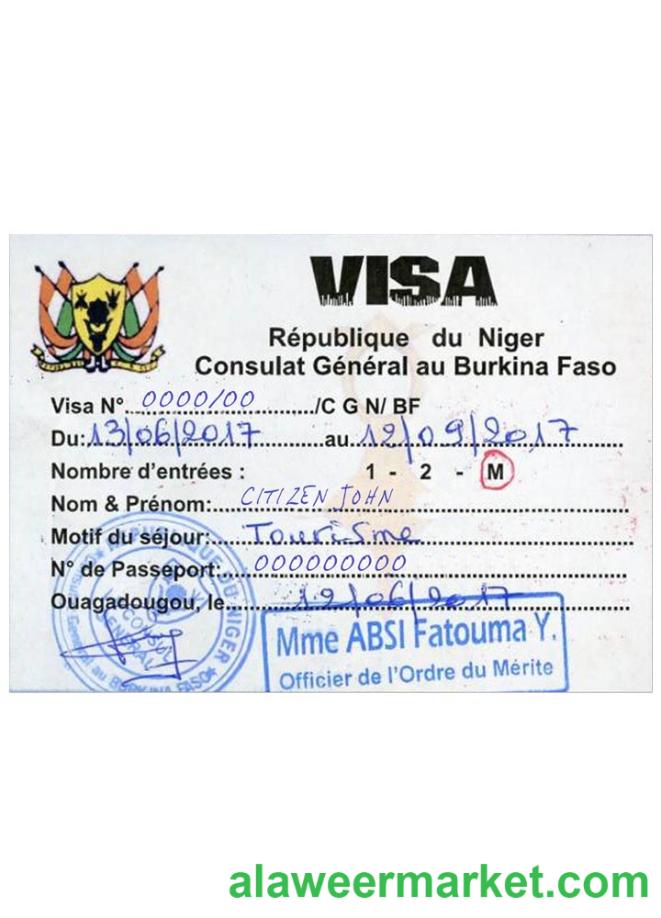 VISA
République du Niger
Consulat Général au Burkina Faso
Visa N°. 0000/00 ............/C G N/ BF
Du: 13/06/2017 ............au 12/09/2017
Nombre d'entrées : 1 - 2 - M
Nom & Prénom: CITIZEN JOHN
Motif du séjour: Tourisme
N° de Passeport: 000000000
Ouagadougou, le 12/06/2017
RÉPUBLIQUE DU NIGER
CONSUL GÉNÉRAL
Consulat Général au BURKINA FASO
Mme ABSI Fatouma Y.
Officier de l'Ordre du Mérite
alaweermarket.com